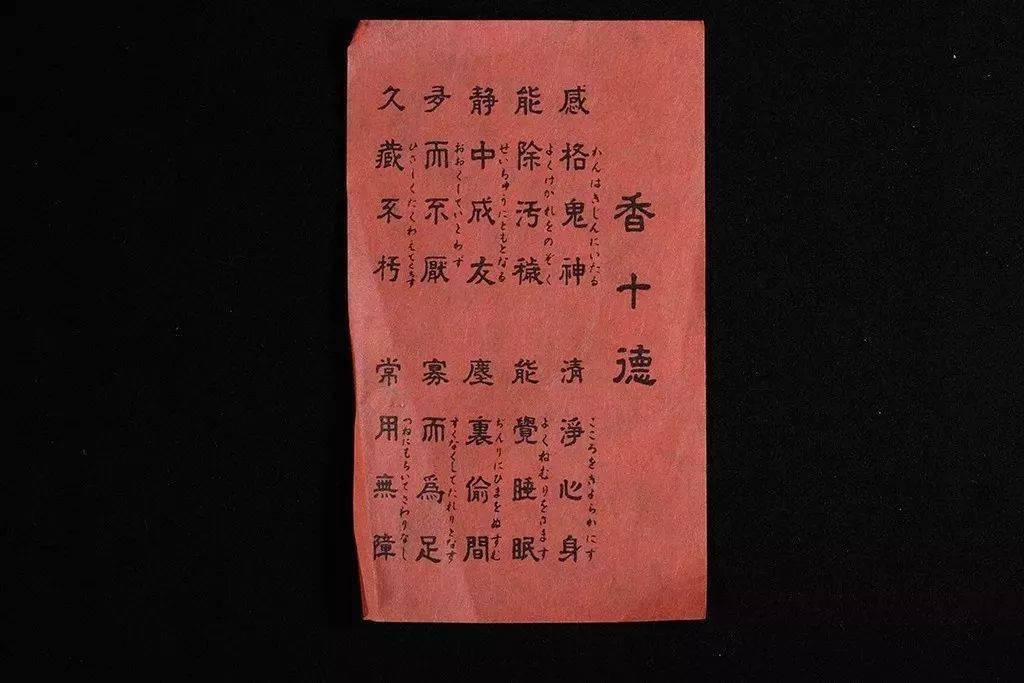 香十德
感格鬼神
かんはきじんにいたる
清淨心身
こころをきよらかにす
能除汚穢
よくけがれをのぞく
能覺睡眠
よくねむりをさます
静中成友
せいちゅうにともとなる
塵裏偷間
ぢんりにひまをぬすむ
多而不厭
おおくしていとわず
寡而爲足
すくなくしてたれりとなす
久藏不朽
ひさしくたくわえてくちず
常用無障
つねにもちいてさわりなし